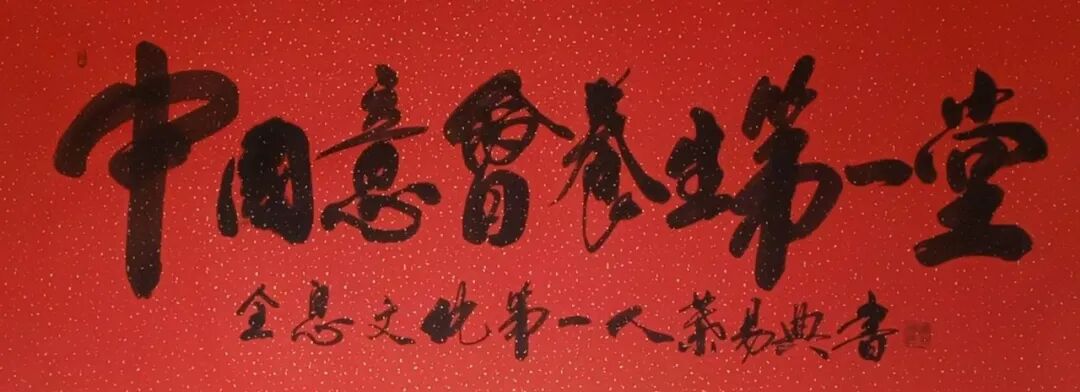 中国意會養生第一堂
全息文化第一人葉易典書